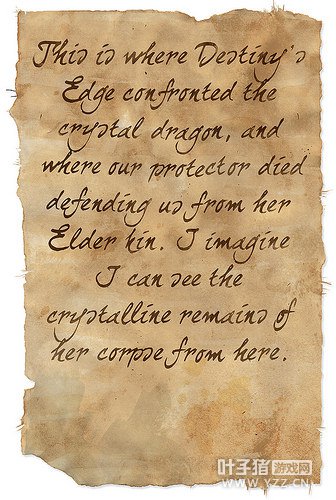 This is where Destiny's
Edge confronted the
crystal dragon, and
where our protector died
defending us from her
Elder kin. I imagine
I can see the
crystalline remains of
her corpse from here.
叶子猪 游戏网
WWW.YZZ.CN